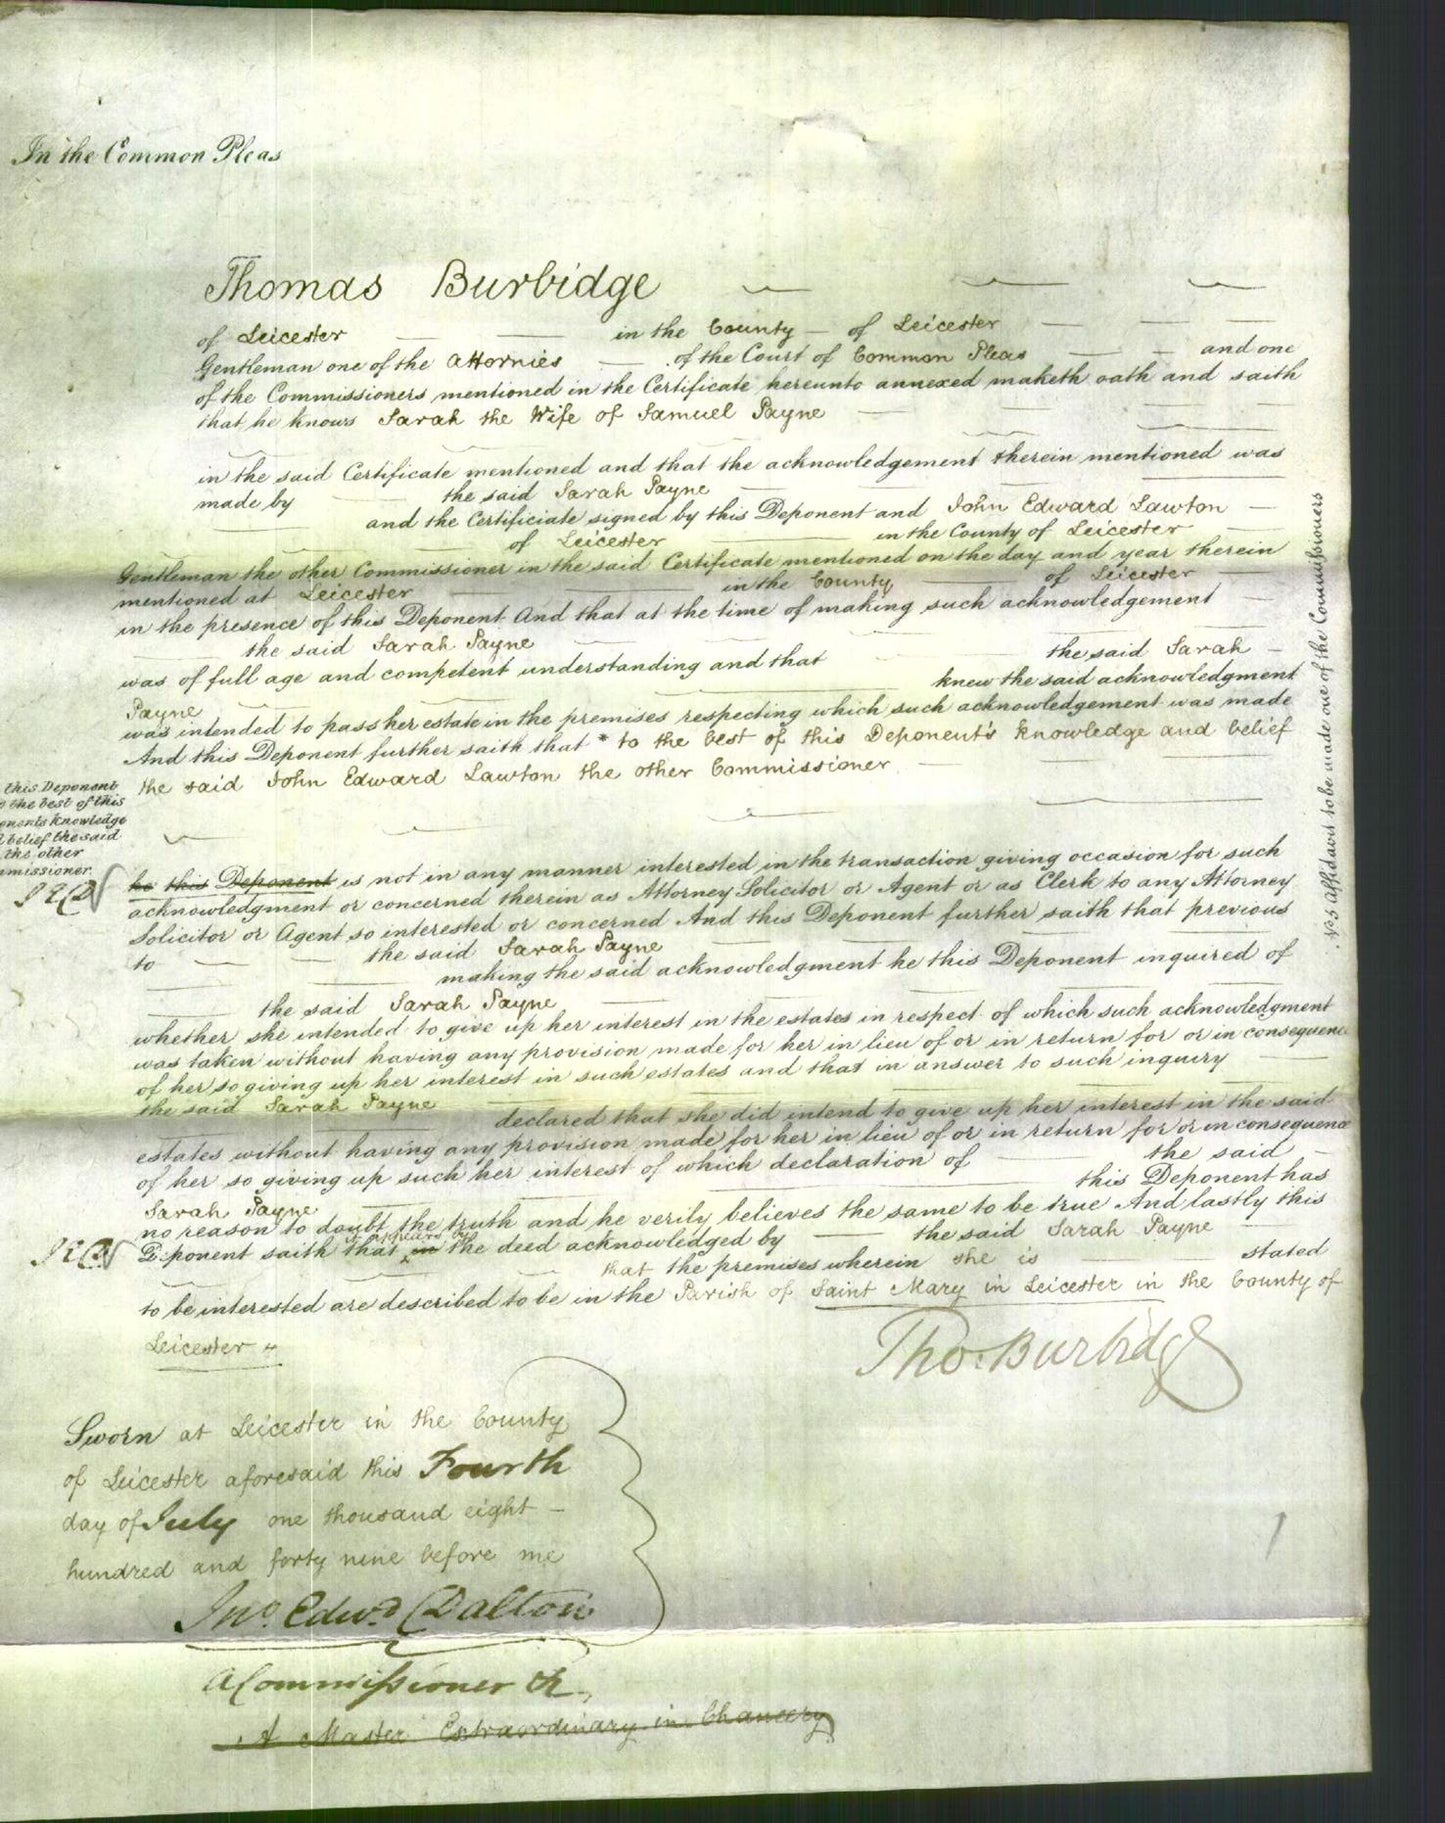 In the Common Pleas
Thomas Burbidge
of Leicester in the County of Leicester
Gentleman one of the Attornies of the Court of Common Pleas and one
of the Commissioners mentioned in the Certificate hereunto annexed maketh oath and saith
that he knows Sarah the Wife of Samuel Payne
in the said Certificate mentioned and that the acknowledgement therein mentioned was
made by the said Sarah Payne
and the Certificiate signed by this Deponent and John Edward Lawton
of Leicester in the County of Leicester
Gentleman the other Commissioner in the said Certificate mentioned on the day and year therein
mentioned at Leicester in the County of Leicester
in the presence of this Deponent And that at the time of making such acknowledgement
the said Sarah Payne
was of full age and competent understanding and that the said Sarah
Payne knew the said acknowledgment
was intended to pass her estate in the premises respecting which such acknowledgement was made
And this Deponent further saith that * to the best of this Deponent's knowledge and belief
the said John Edward Lawton the other Commissioner
this Deponent
the best of this
knowledge
belief the said
the other
he this Deponent is not in any manner interested in the transaction giving occasion for such
acknowledgment or concerned therein as Attorney Solicitor or Agent or as Clerk to any Attorney
Solicitor or Agent so interested or concerned And this Deponent further saith that previous
to the said Sarah Payne
making the said acknowledgment he this Deponent inquired of
the said Sarah Payne
whether she intended to give up her interest in the estates in respect of which such acknowledgment
was taken without having any provision made for her in lieu of or in return for or in consequence
of her so giving up her interest in such estates and that in answer to such inquiry
the said Sarah Payne declared that she did intend to give up her interest in the said
estates without having any provision made for her in lieu of or in return for or in consequence
of her so giving up such her interest of which declaration of the said
Sarah Payne this Deponent has
no reason to doubt the truth and he verily believes the same to be true And lastly this
Deponent saith that it appears by the deed acknowledged by the said Sarah Payne
that the premises wherein she is stated
to be interested are described to be in the Parish of Saint Mary in Leicester in the County of
Leicester
Tho. Burbidge
Sworn at Leicester in the County
of Leicester aforesaid this Fourth
day of July one thousand eight
hundred and forty nine before me
Jno. Edwd. Dalton
A Commissioner &c.
A Master Extraordinary in Chancery
No. 5 Affidavit to be made one of the Commissioners